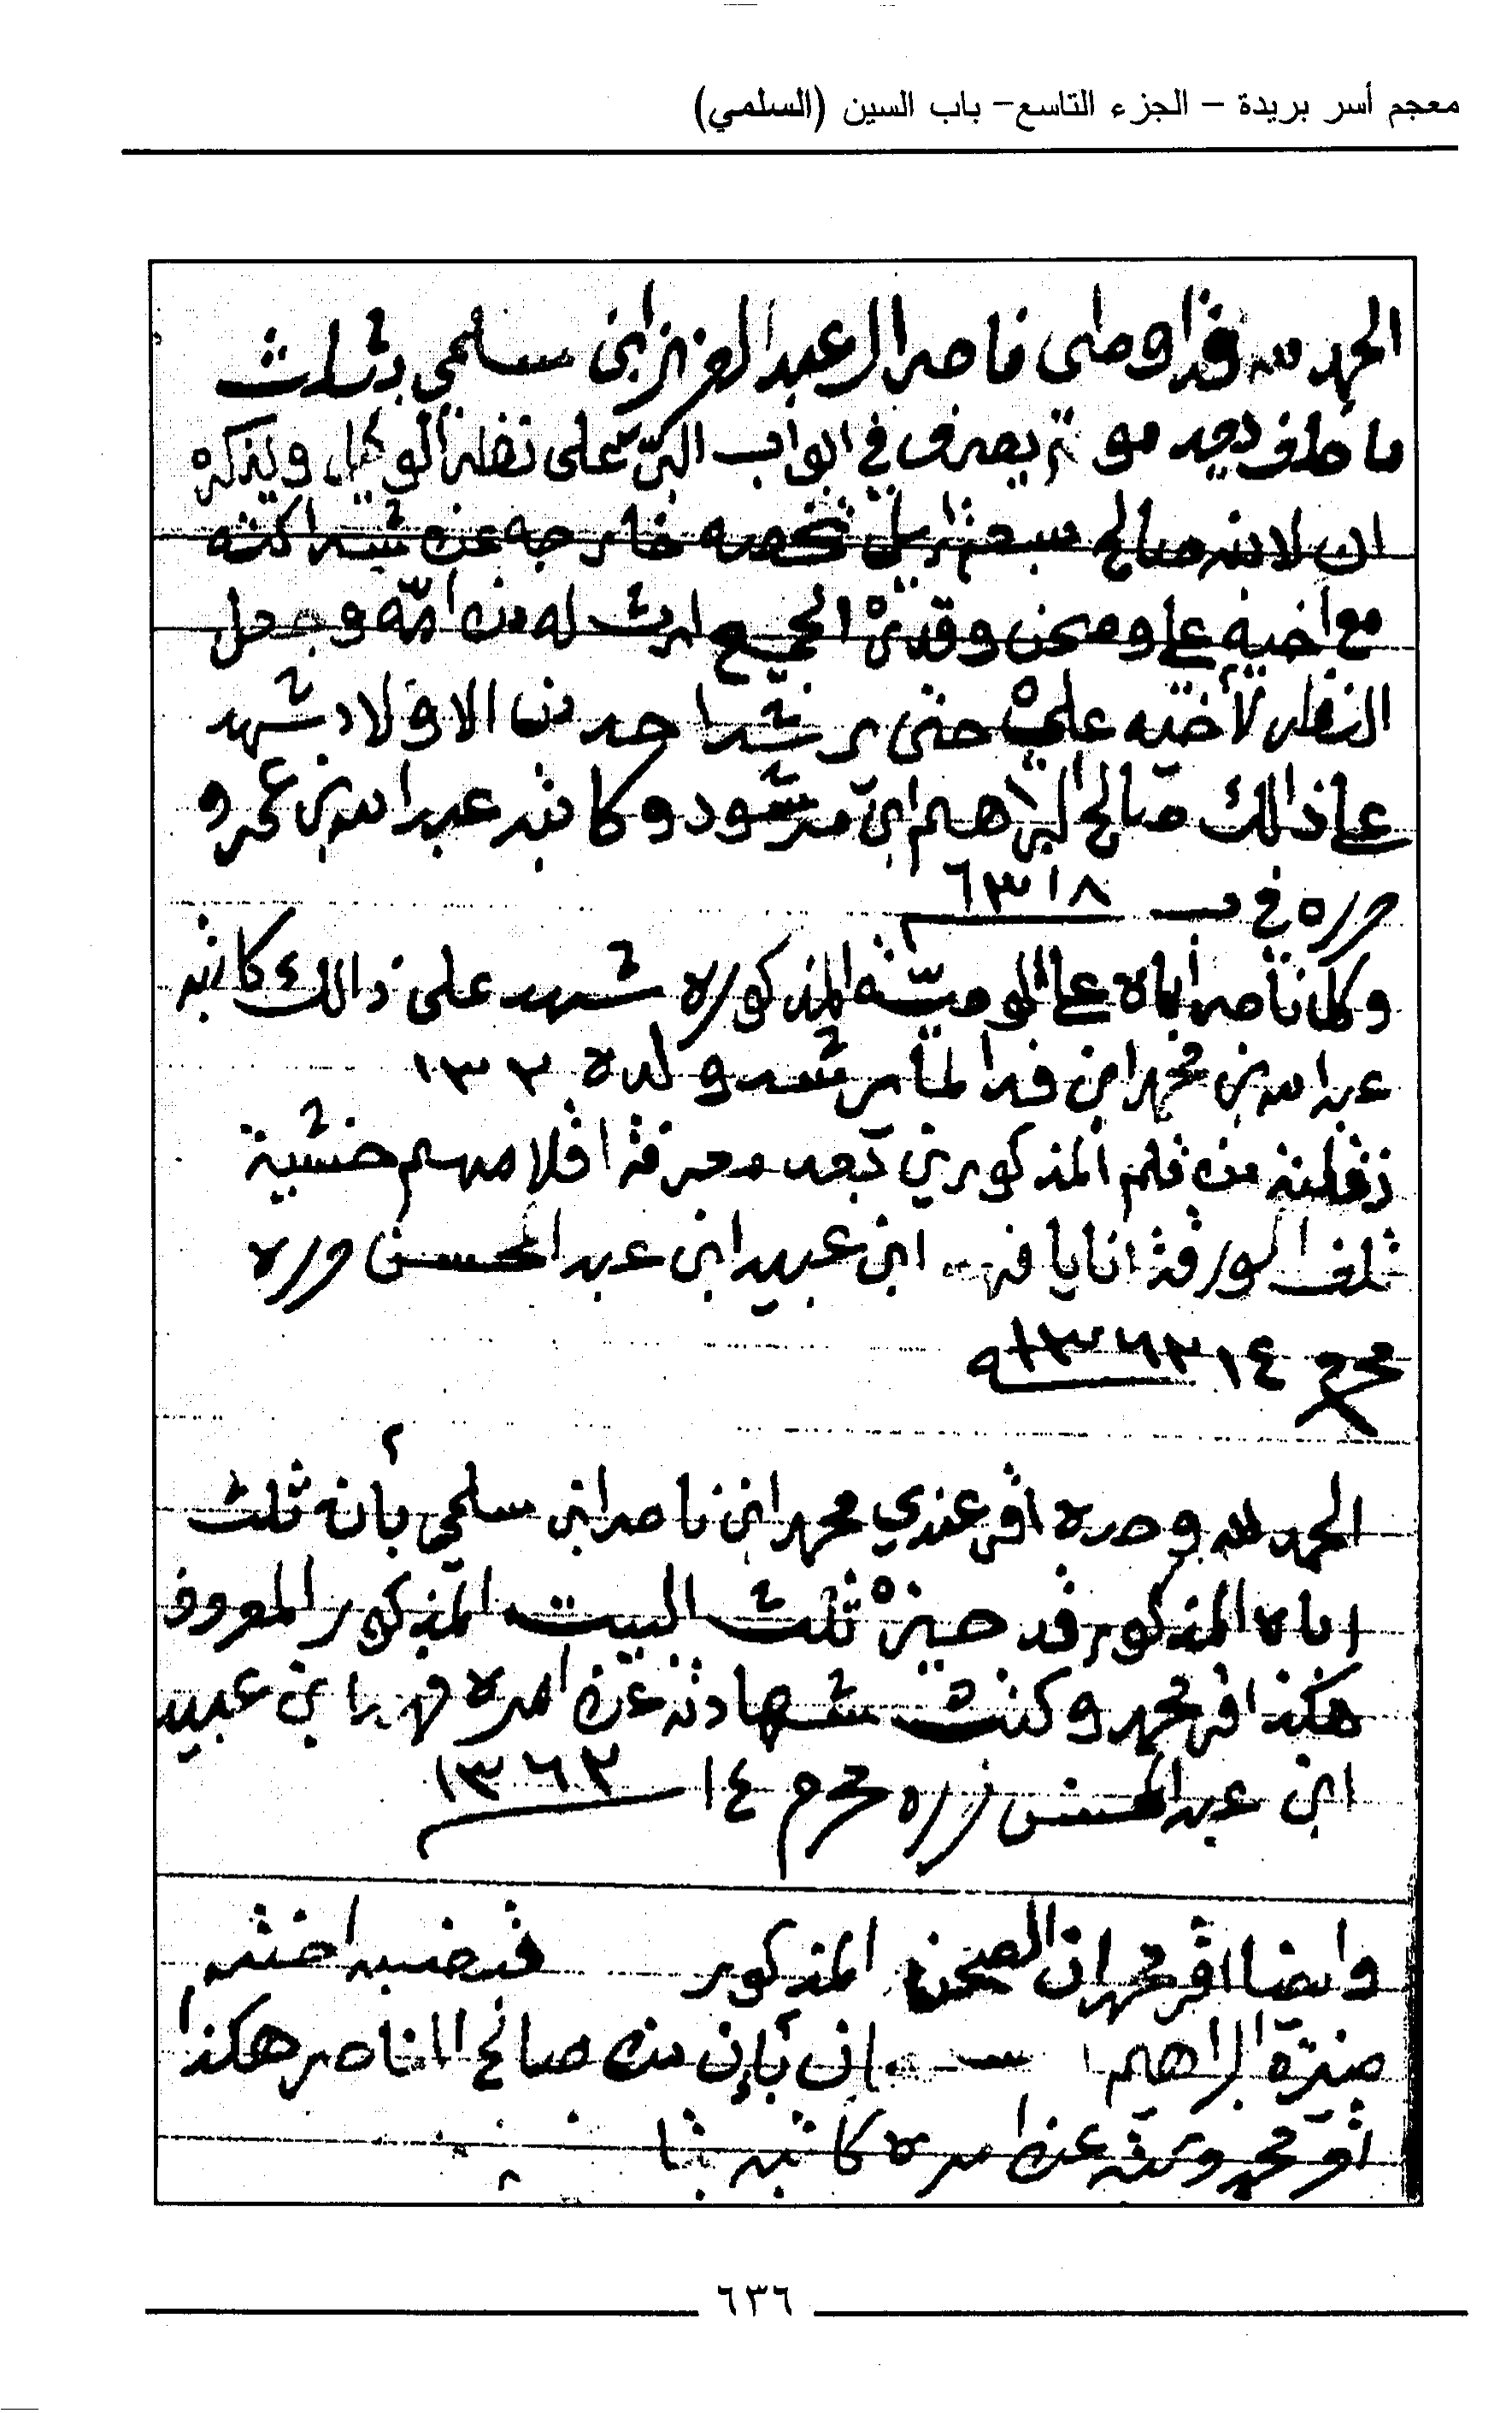 معجم أسر بريدة – الجزء التاسع– باب السين (السلمي)
الحمد لله قد اوصى ناصر ال عبد العزيز ابن سلمي بثلث
ما خلف بعد موته يصرف في ابواب البر على نضر الوكيل ويذكر
ان لابنه صالح سبعة اريل تخصه خارجه عن شراكته
مع أخيه علي وصحن وقدر الجميع ارث له من امه وجعل
النضر لأخيه علي حتى يرشد احد من الاولاد شهد
على ذالك صالح البراهيم ابن مرشود وكاتبه عبد الله بن عمرو
حرره في ١٣١٨
وكل ناصر أباه على الوصية المذكوره شهد على ذالك كاتبه
عبد الله بن محمد ابن فدا لمارشد ولده ١٣٣٠
نقلته من قلم المذكورين بعد معرفة اقلامهم خشية
تلف الورقة انا يا فهد ابن عبيد ابن عبد المحسن حرره
محرم ١٤ ١٣٦٣
الحمد لله وحده اقر عندي محمد ابن ناصر ابن سلمي بأنه ثلث
اباه المذكور قد حيزه ثلث البيت المذكور المعروف
هكذا اقر محمد وكتبت شهادته عن امره فهد بن عبيد
ابن عبد المحسن حرره محرم ١٤ ١٣٦٣
وايضا اقر محمد ان الصحن المذكور قبضته اخته
منيرة البراهيم بإن من صالح الناصر هكذا
اقر محمد وكتبه عن امره كاتبه
٦٣٦